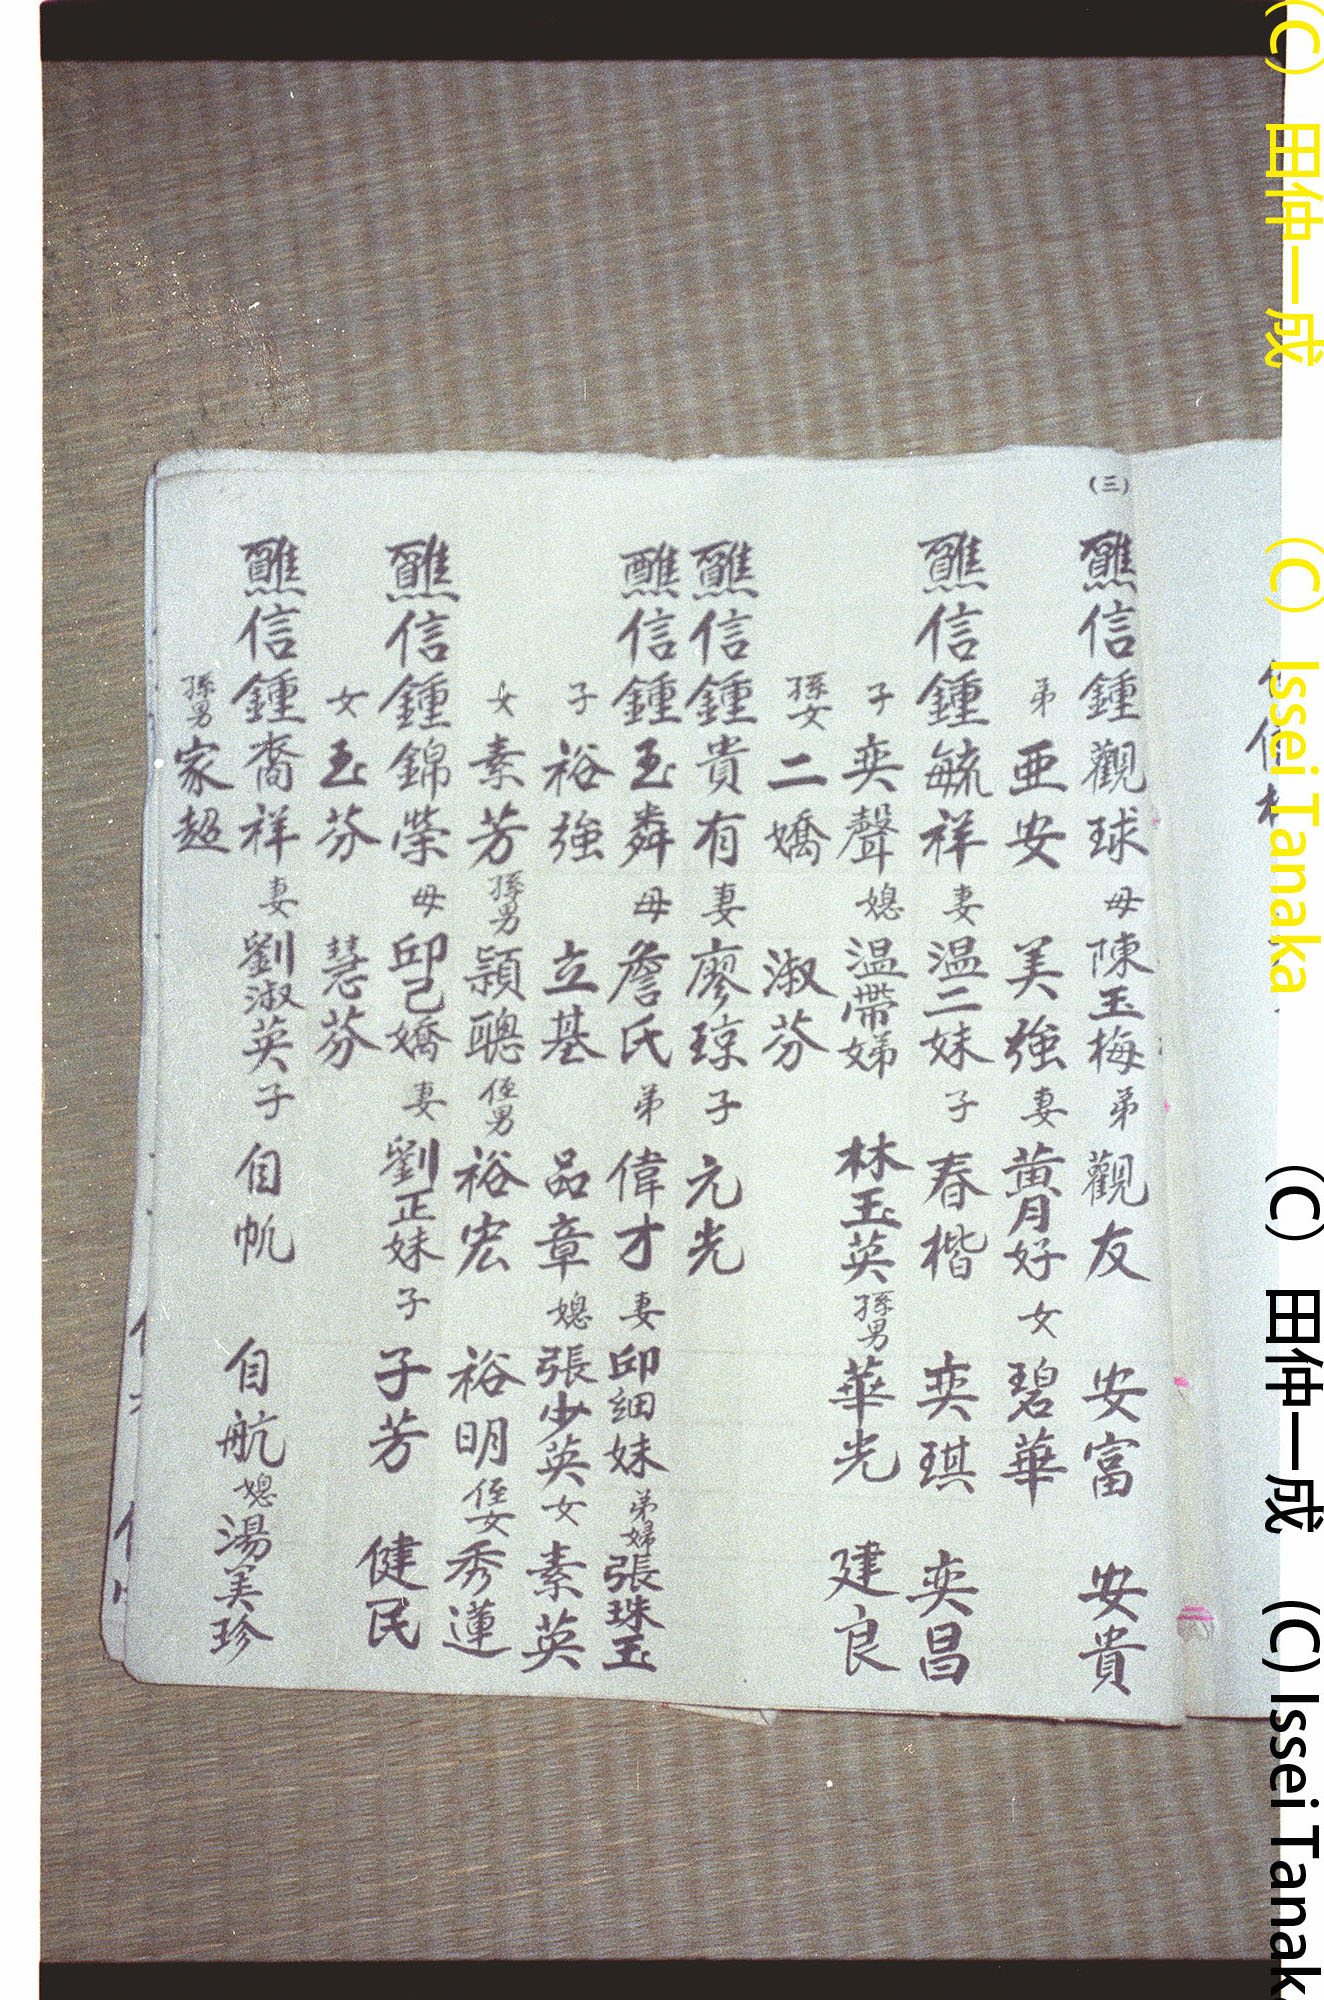 (三)
醮信鍾觀球 母 陳玉梅 弟 觀友 安富 安貴
弟 亜安 美強 妻 黄月好 女 碧華
醮信鍾毓祥 妻 温二妹 子 春楷 奕琪 奕昌
子 奕聲 媳 温帶娣 林玉英 孫男 華光 建良
孫女 二嬌 淑芬
醮信鍾貴有 妻 廖琼 子 元光
醮信鍾玉粦 母 詹氏 弟 偉才 妻 邱細妹 弟婦 張珠玉
子 裕強 立基 品章 媳 張少英 女 素英
女 素芳 孫男 穎聰 侄男 裕宏 裕明 侄女 秀蓮
醮信鍾錦榮 母 邱己嬌 妻 劉正妹 子 子芳 健民
女 玉芬 慧芬
醮信鍾裔祥 妻 劉淑英 子 自帆 自航 媳 湯美珍
孫男 家超
(C) 田仲一成 (C) Issei Tanaka (C) 田仲一成 (C) Issei Tanak